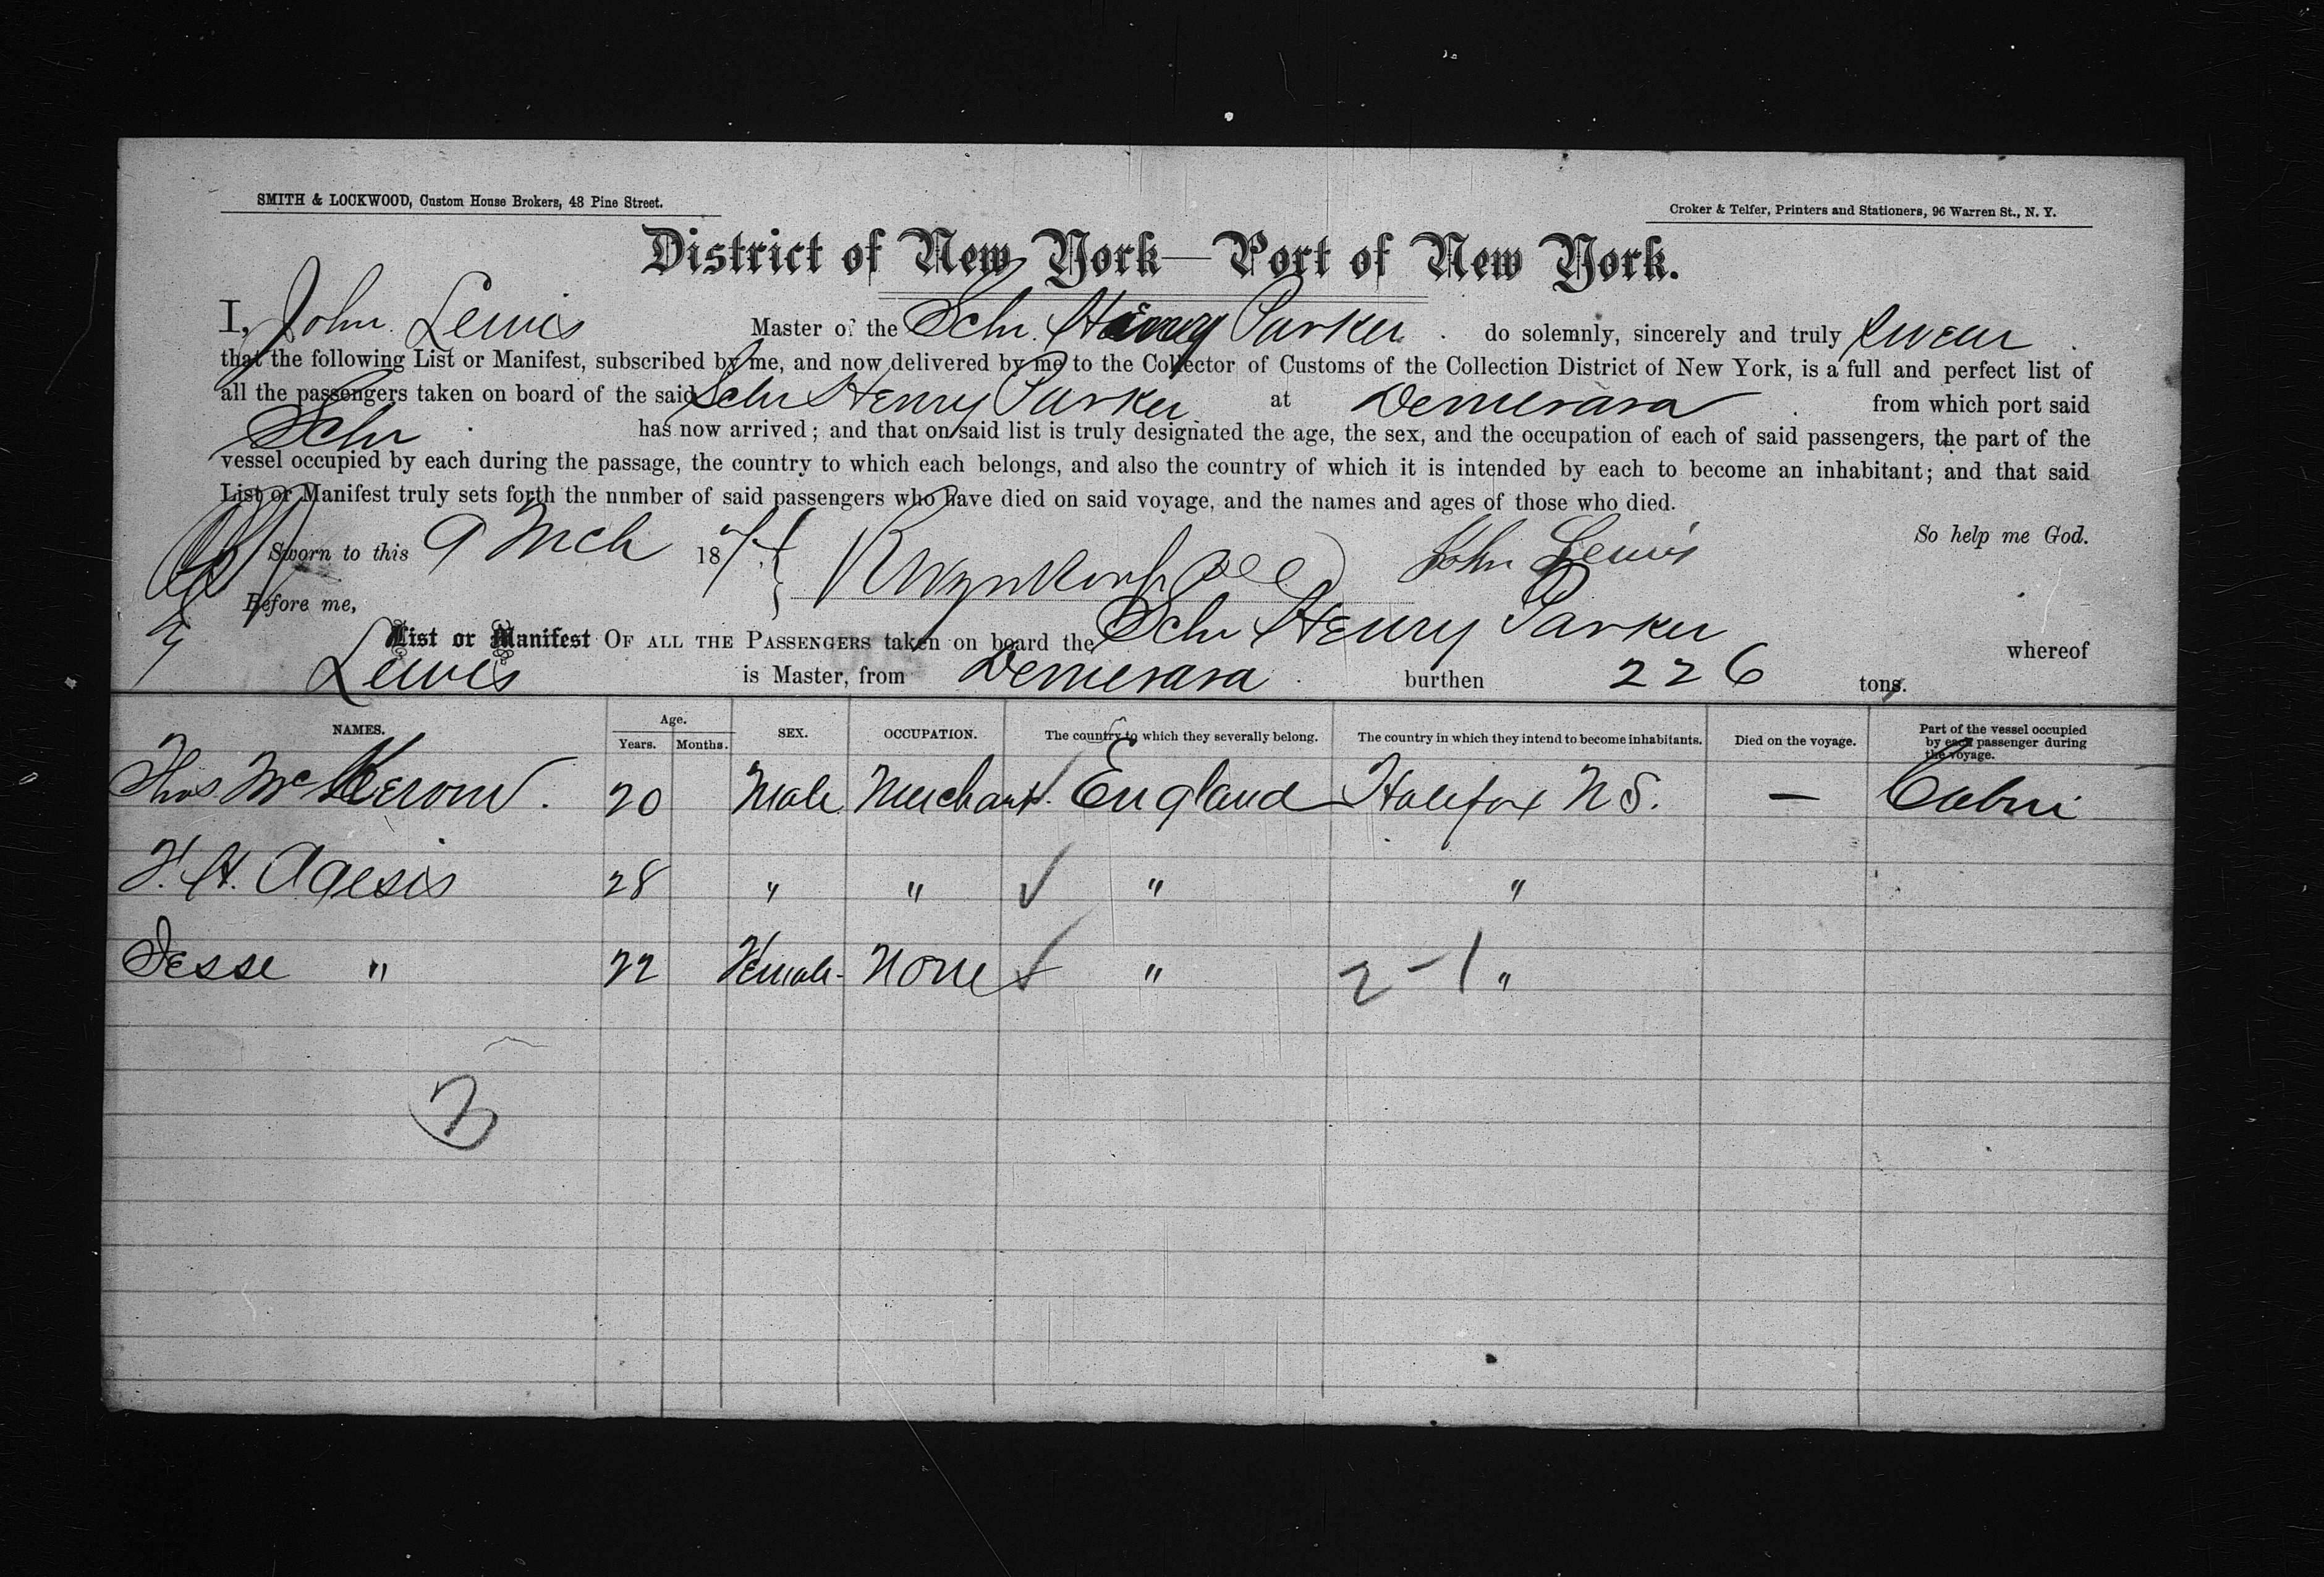 SMITH & LOCKWOOD, Custom House Brokers, 48 Pine Street.
Croker & Telfer, Printers and Stationers, 96 Warren St., N. Y.
District of New York—Port of New York.
I, John Lewis Master of the Schr. Henry Parker do solemnly, sincerely and truly swear
that the following List or Manifest, subscribed by me, and now delivered by me to the Collector of Customs of the Collection District of New York, is a full and perfect list of
all the passengers taken on board of the said Schr Henry Parker at Demerara from which port said
Schr has now arrived; and that on said list is truly designated the age, the sex, and the occupation of each of said passengers, the part of the
vessel occupied by each during the passage, the country to which each belongs, and also the country of which it is intended by each to become an inhabitant; and that said
List or Manifest truly sets forth the number of said passengers who have died on said voyage, and the names and ages of those who died.
So help me God.
Sworn to this 9 Mch 187 John Lewis
Before me,
List or Manifest OF ALL THE PASSENGERS taken on board the Schr Henry Parker whereof
Lewis is Master, from Demerara burthen 226 tons.
NAMES. Age. Years. Months. SEX. OCCUPATION. The country to which they severally belong. The country in which they intend to become inhabitants. Died on the voyage. Part of the vessel occupied by each passenger during the voyage.
Thos 20 Male Merchant England Halifax N S. — Cabin
28 " " ✓ " "
Jesse " 22 Female None ✓ " 2-1 "
3